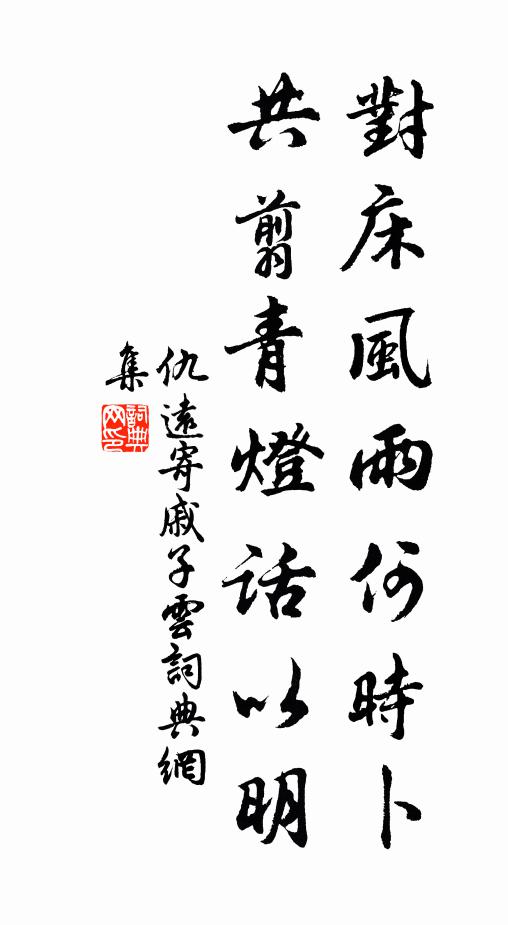 對床風雨何時卜
共翦青燈話以明
仇遠寄戚子雲詞典網
集
詞典
网印